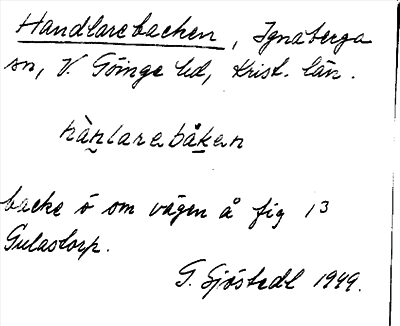 Handlarebacken, Ignaberga
sn, V. Göinge hd, Krist. län.
hànlarebåken
backe ö om vägen å fig 13
Gulastorp.
G. Sjöstedt 1949.